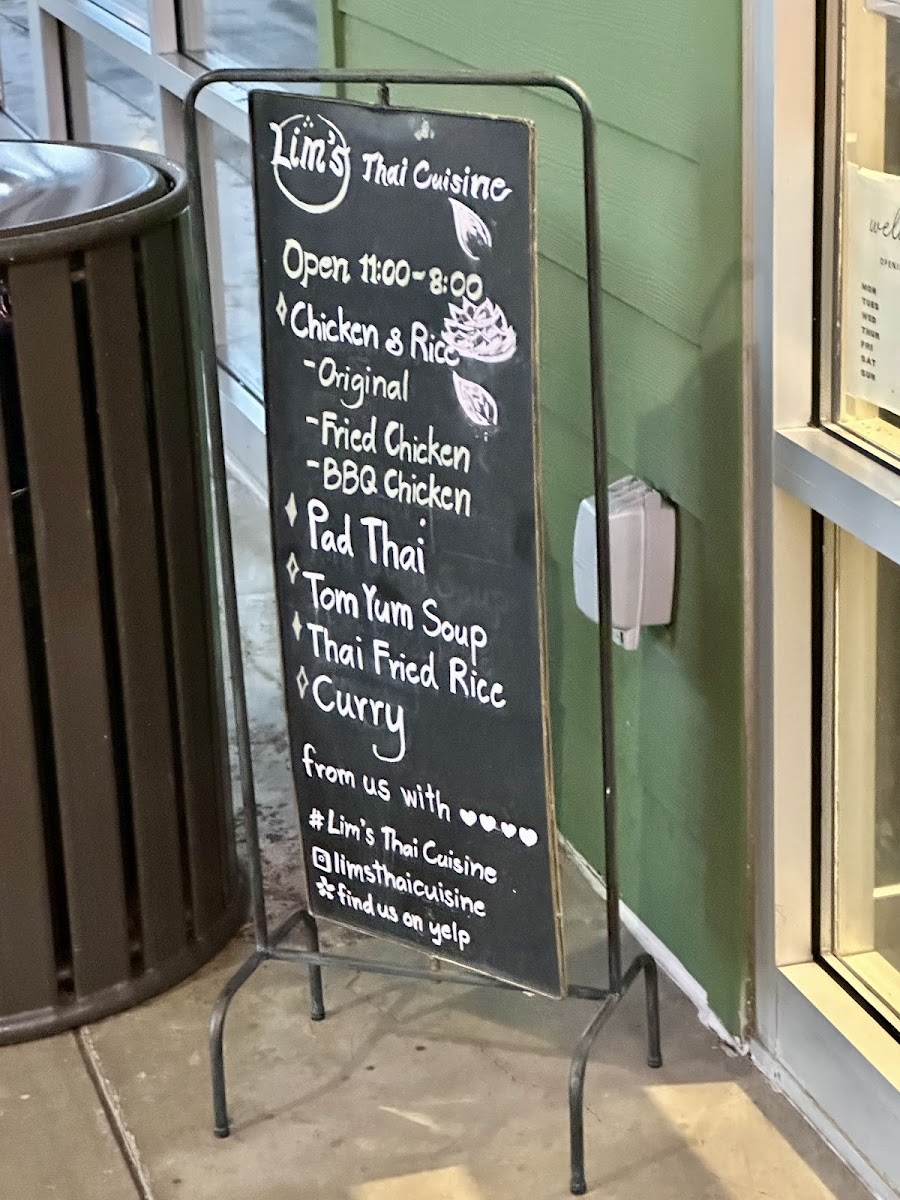 Lim's Thai Cuisine
Open 11:00-8:00
Chicken & Rice
-Original
-Fried Chicken
-BBQ Chicken
Pad Thai
Tom Yum Soup
Thai Fried Rice
Curry
from us with ♥♥♥♥
#Lim's Thai Cuisine
limsthaicuisine
find us on yelp
MON
TUES
WED
THUR
FRI
SAT
SUN